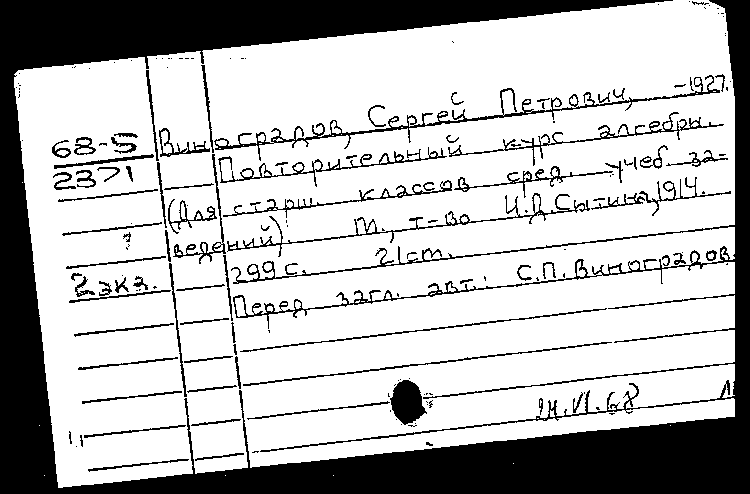 68-5 Виноградов, Сергей Петрович, -1927.
2371 Повторительный курс алгебры.
(Для старш. классов сред. учеб. за-
ведений). М., т-во И.Д.Сытина, 1914.
2 экз. 299 с. 21 см.
Перед загл. авт.: С.П.Виноградов.
24.VI.68